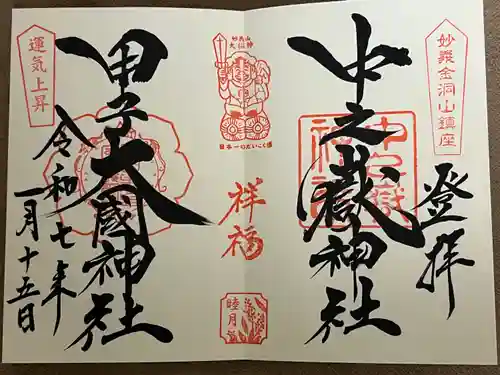 妙義金洞山鎮座
登拝
中之嶽神社
中之嶽
神社
妙義山
大国神
日本一のだいこく様
祥福
睦月
甲子大國神社
運気上昇
令和七年
一月十五日